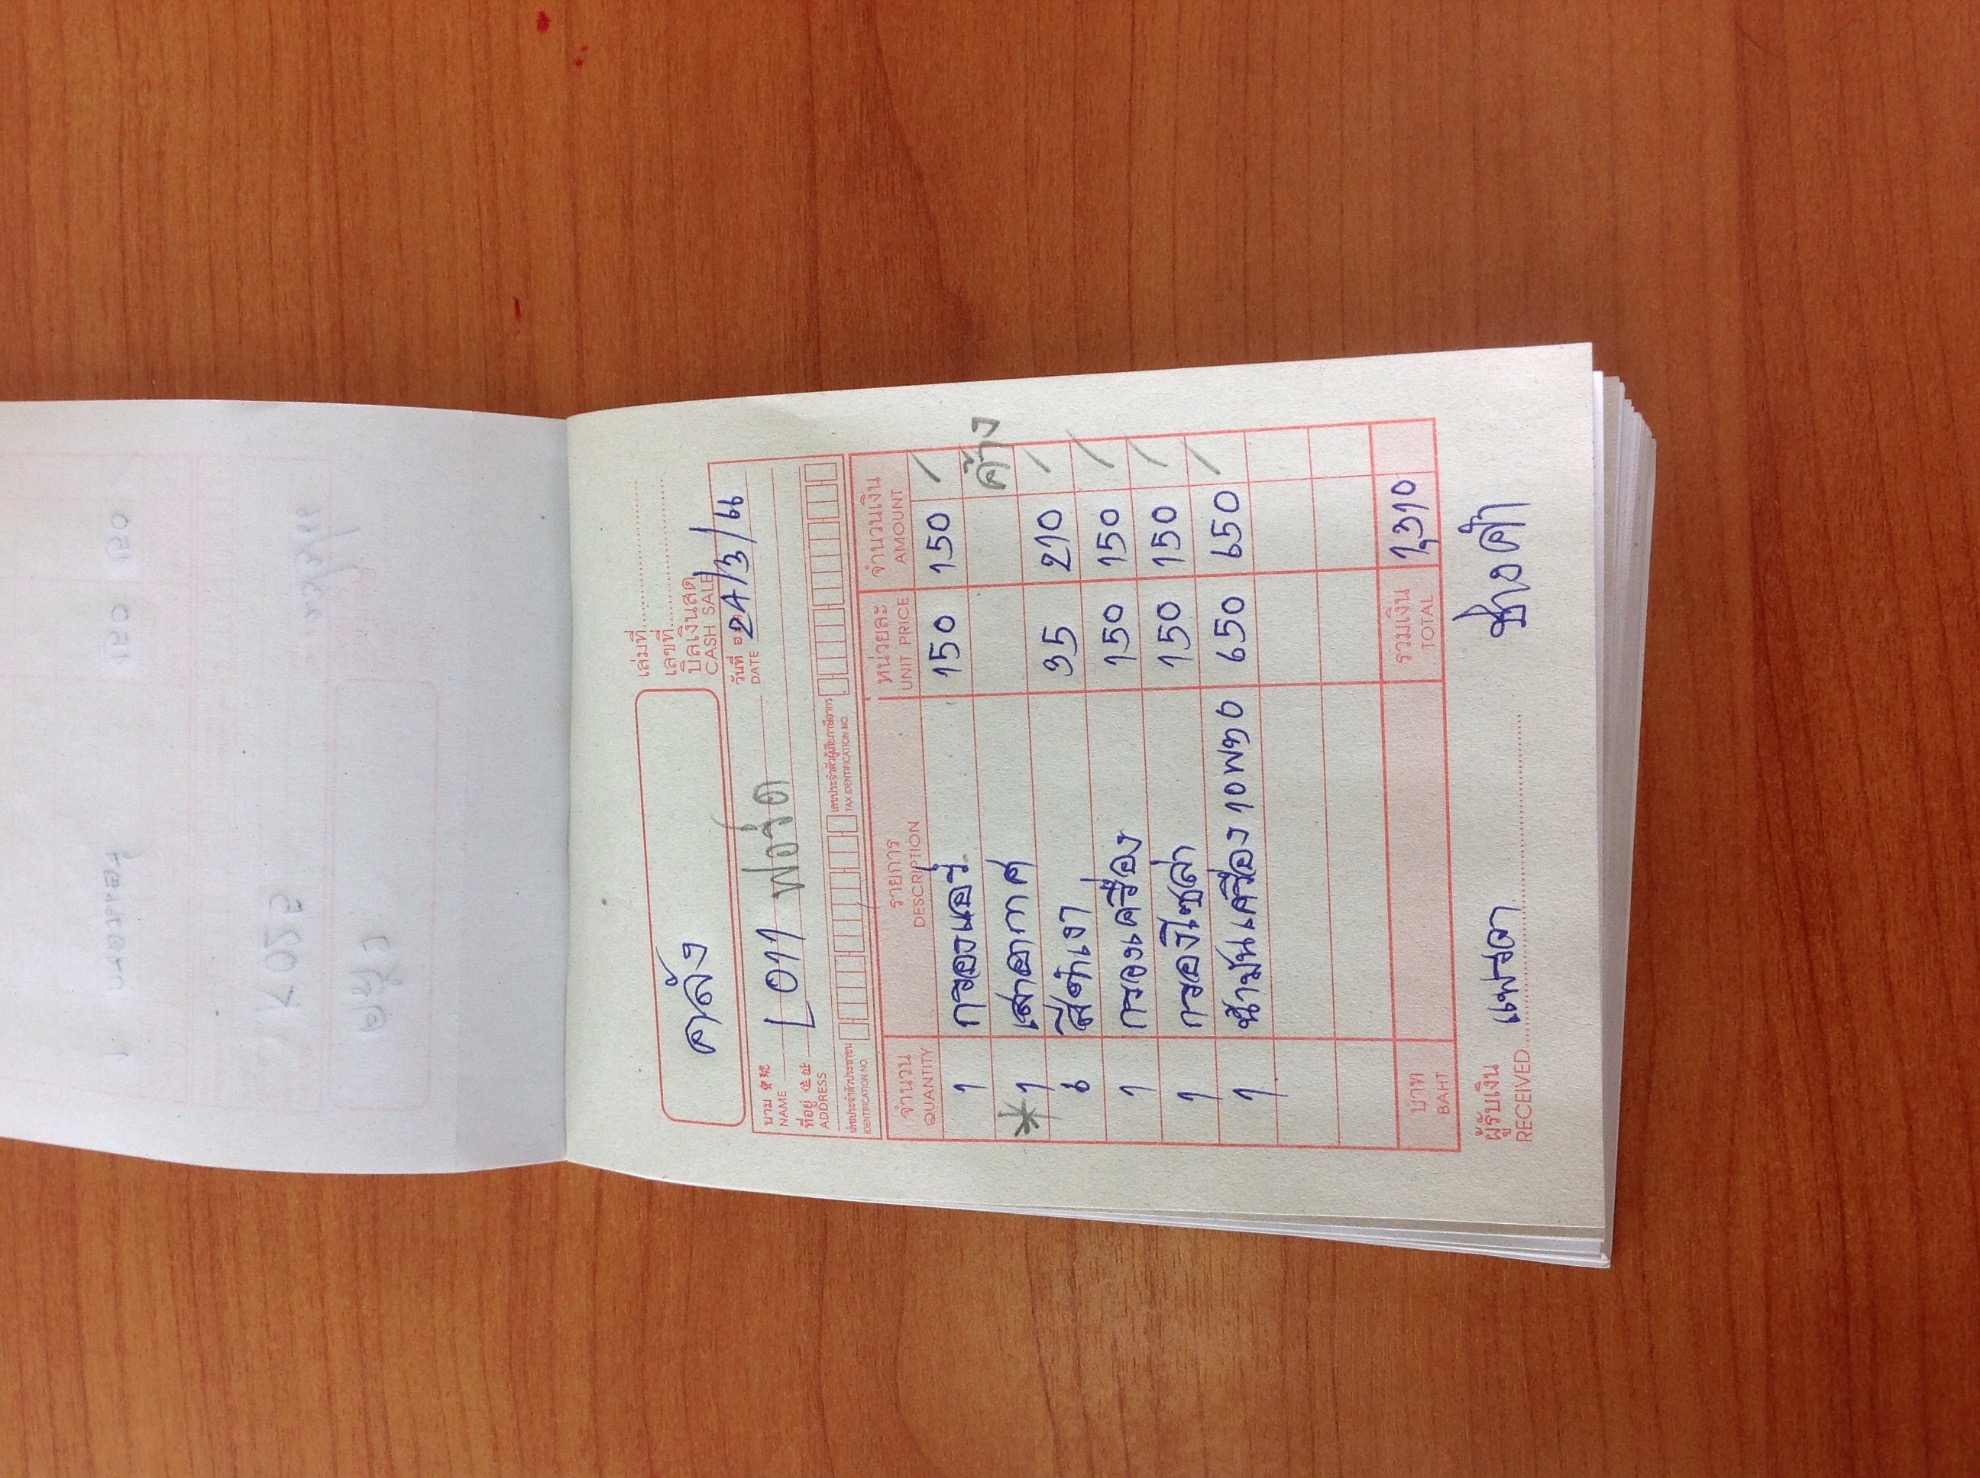 เล่มที่
เลขที่
คลัง
บิลเงินสด
CASH SALE
วันที่ 24/3/66
DATE
นาม L011 ฟอร์ด
NAME
ที่อยู่ 住址
ADDRESS
เลขประจำตัวประชาชน เลขประจำตัวผู้เสียภาษีอากร
IDENTIFICATION NO. TAX IDENTIFICATION NO.
จำนวน รายการ หน่วยละ จำนวนเงิน
QUANTITY DESCRIPTION UNIT PRICE AMOUNT
1 กรองแอร์ 150 150 /
*1 เสาอากาศ ค้าง
6 สีดำเงา 35 210 /
1 กรองเครื่อง 150 150 /
1 กรองโซล่า 150 150 /
1 น้ำมันเครื่อง 10W30 650 650 /
บาท รวมเงิน 1,310
BAHT TOTAL
ผู้รับเงิน แพรวา ช่างคำ
RECEIVED